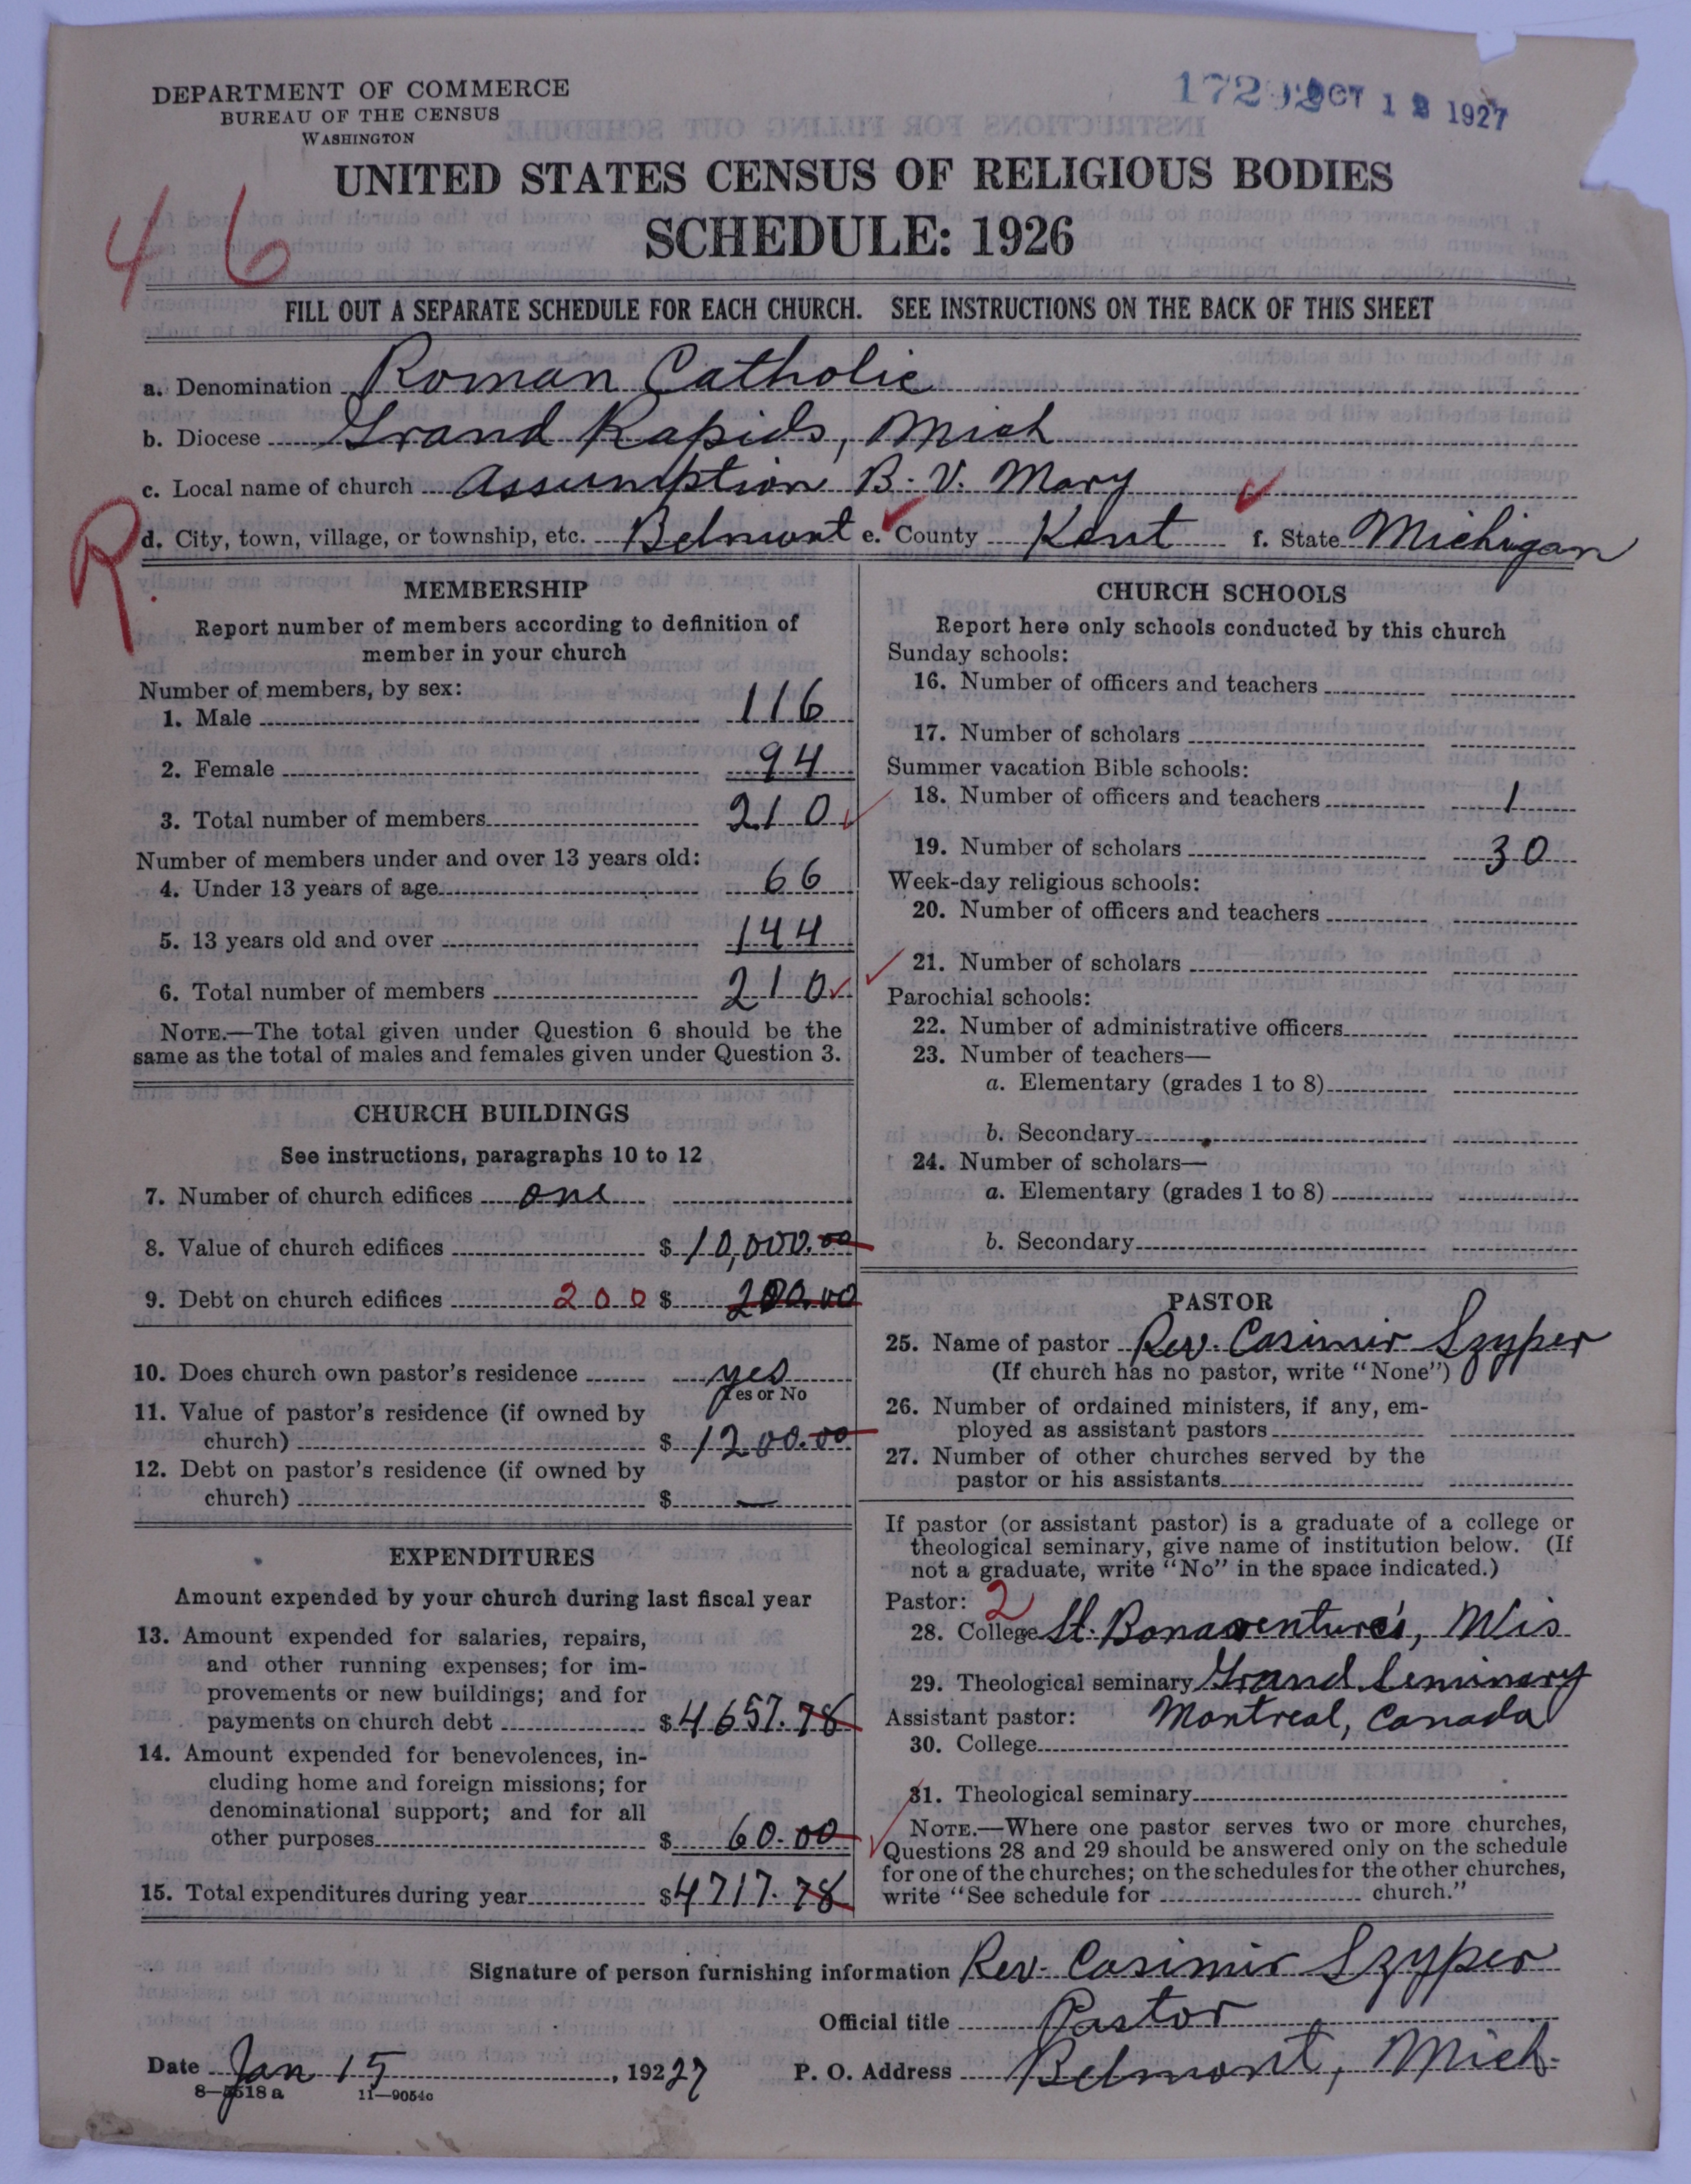 DEPARTMENT OF COMMERCE
BUREAU OF THE CENSUS
WASHINGTON
OCT 12 1927
UNITED STATES CENSUS OF RELIGIOUS BODIES
SCHEDULE: 1926
46
FILL OUT A SEPARATE SCHEDULE FOR EACH CHURCH. SEE INSTRUCTIONS ON THE BACK OF THIS SHEET
a. Denomination Roman Catholic
b. Diocese Grand Rapids, Mich
c. Local name of church Assumption B. V. Mary
R.
d. City, town, village, or township, etc. Belmont e. County Kent f. State Michigan
MEMBERSHIP
Report number of members according to definition of
member in your church
Number of members, by sex:
1. Male 116
2. Female 94
3. Total number of members 210
Number of members under and over 13 years old:
4. Under 13 years of age 66
5. 13 years old and over 144
6. Total number of members 210
NOTE.—The total given under Question 6 should be the
same as the total of males and females given under Question 3.
CHURCH BUILDINGS
See instructions, paragraphs 10 to 12
7. Number of church edifices one
8. Value of church edifices $ 10,000.00
9. Debt on church edifices 200 $ 200.00
10. Does church own pastor's residence yes
Yes or No
11. Value of pastor's residence (if owned by
church) $ 1200.00
12. Debt on pastor's residence (if owned by
church) $ —
EXPENDITURES
Amount expended by your church during last fiscal year
13. Amount expended for salaries, repairs,
and other running expenses; for im-
provements or new buildings; and for
payments on church debt $ 4657.78
14. Amount expended for benevolences, in-
cluding home and foreign missions; for
denominational support; and for all
other purposes $ 60.00
15. Total expenditures during year $ 4717.78
CHURCH SCHOOLS
Report here only schools conducted by this church
Sunday schools:
16. Number of officers and teachers
17. Number of scholars
Summer vacation Bible schools:
18. Number of officers and teachers 1
19. Number of scholars 30
Week-day religious schools:
20. Number of officers and teachers
21. Number of scholars
Parochial schools:
22. Number of administrative officers
23. Number of teachers—
a. Elementary (grades 1 to 8)
b. Secondary
24. Number of scholars—
a. Elementary (grades 1 to 8)
b. Secondary
PASTOR
25. Name of pastor Rev. Casimir Szyper
(If church has no pastor, write "None")
26. Number of ordained ministers, if any, em-
ployed as assistant pastors
27. Number of other churches served by the
pastor or his assistants
If pastor (or assistant pastor) is a graduate of a college or
theological seminary, give name of institution below. (If
not a graduate, write "No" in the space indicated.)
Pastor: 2
28. College St. Bonaventure's, Wis
29. Theological seminary Grand Seminary
Assistant pastor: Montreal, Canada
30. College
31. Theological seminary
NOTE.—Where one pastor serves two or more churches,
Questions 28 and 29 should be answered only on the schedule
for one of the churches; on the schedules for the other churches,
write "See schedule for church."
Signature of person furnishing information Rev. Casimir Szyper
Official title Pastor
Date Jan 15, 19227 P. O. Address Belmont, Mich.
8—5518 a 11—9054c